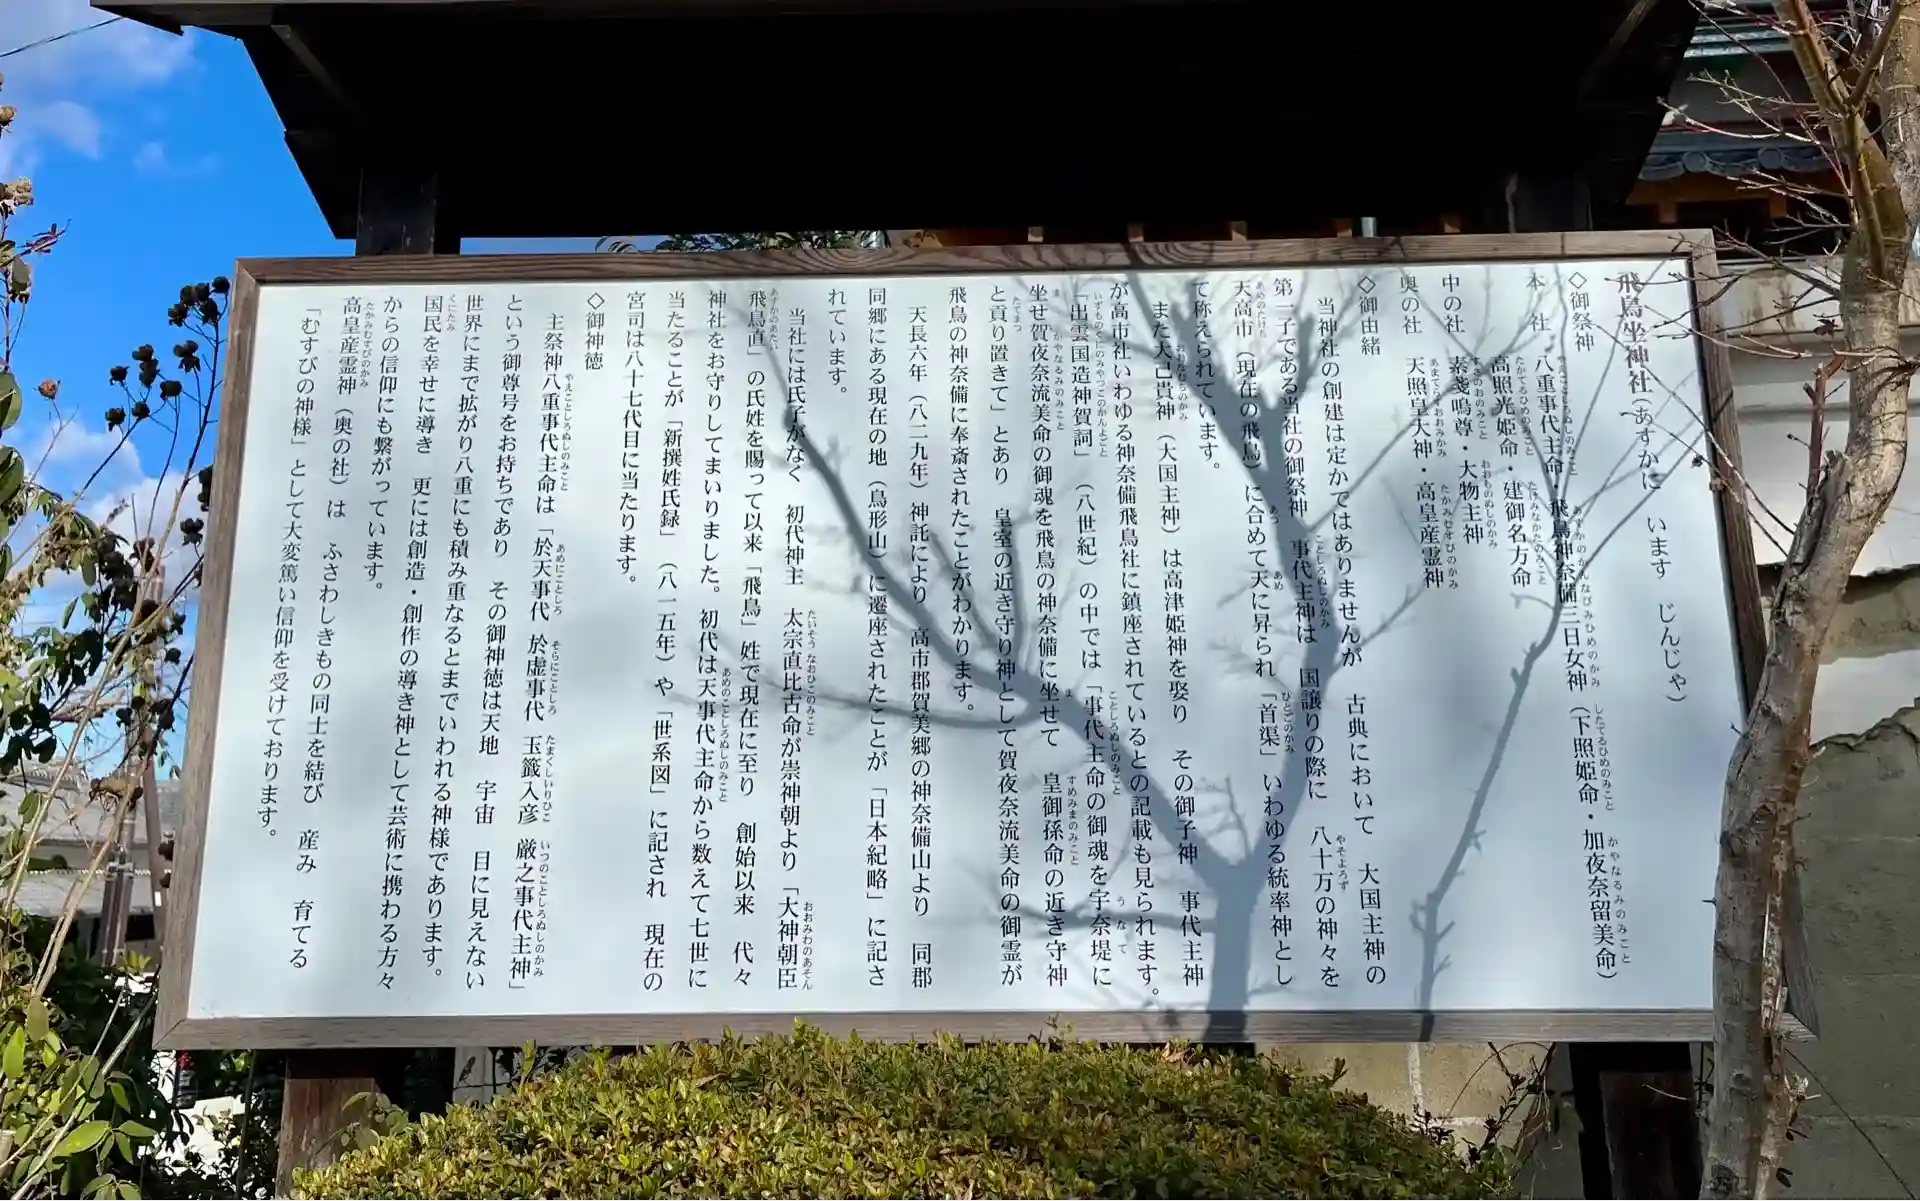 飛鳥坐神社(あすかに　います　じんじゃ)
◇御祭神
本　社　八重事代主命・飛鳥神奈備三日女神（下照姫命・加夜奈留美命）
高照光姫命・建御名方命
中の社　素戔嗚尊・大物主神
奥の社　天照皇大神・高皇産霊神
◇御由緒
当神社の創建は定かではありませんが　古典において　大国主神の
第一子である当社の御祭神　事代主神は　国譲りの際に　八十万の神々を
天高市（現在の飛鳥）に合めて天に昇られ「首渠」いわゆる統率神とし
て称えられています。
また大己貴神（大国主神）は高津姫神を娶り　その御子神　事代主神
が高市社いわゆる神奈備飛鳥社に鎮座されているとの記載も見られます。
「出雲国造神賀詞」（八世紀）の中では「事代主命の御魂を宇奈堤に
坐せ賀夜奈流美命の御魂を飛鳥の神奈備に坐せて　皇御孫命の近き守神
と貢り置きて」とあり　皇室の近き守り神として賀夜奈流美命の御霊が
飛鳥の神奈備に奉斎されたことがわかります。
天長六年（八二九年）神託により　高市郡賀美郷の神奈備山より　同郡
同郷にある現在の地（鳥形山）に遷座されたことが「日本紀略」に記さ
れています。
当社には氏子がなく　初代神主　太宗直比古命が崇神朝より「大神朝臣
飛鳥直」の氏姓を賜って以来「飛鳥」姓で現在に至り　創始以来　代々
神社をお守りしてまいりました。初代は天事代主命から数えて七世に
当たることが「新撰姓氏録」（八一五年）や「世系図」に記され　現在の
宮司は八十七代目に当たります。
◇御神徳
主祭神八重事代主命は「於天事代　於虚事代　玉籤入彦　厳之事代主神」
という御尊号をお持ちであり　その御神徳は天地　宇宙　目に見えない
世界にまで拡がり八重にも積み重なるとまでいわれる神様であります。
国民を幸せに導き　更には創造・創作の導き神として芸術に携わる方々
からの信仰にも繋がっています。
高皇産霊神（奥の社）は　ふさわしきもの同士を結び　産み　育てる
「むすびの神様」として大変篤い信仰を受けております。